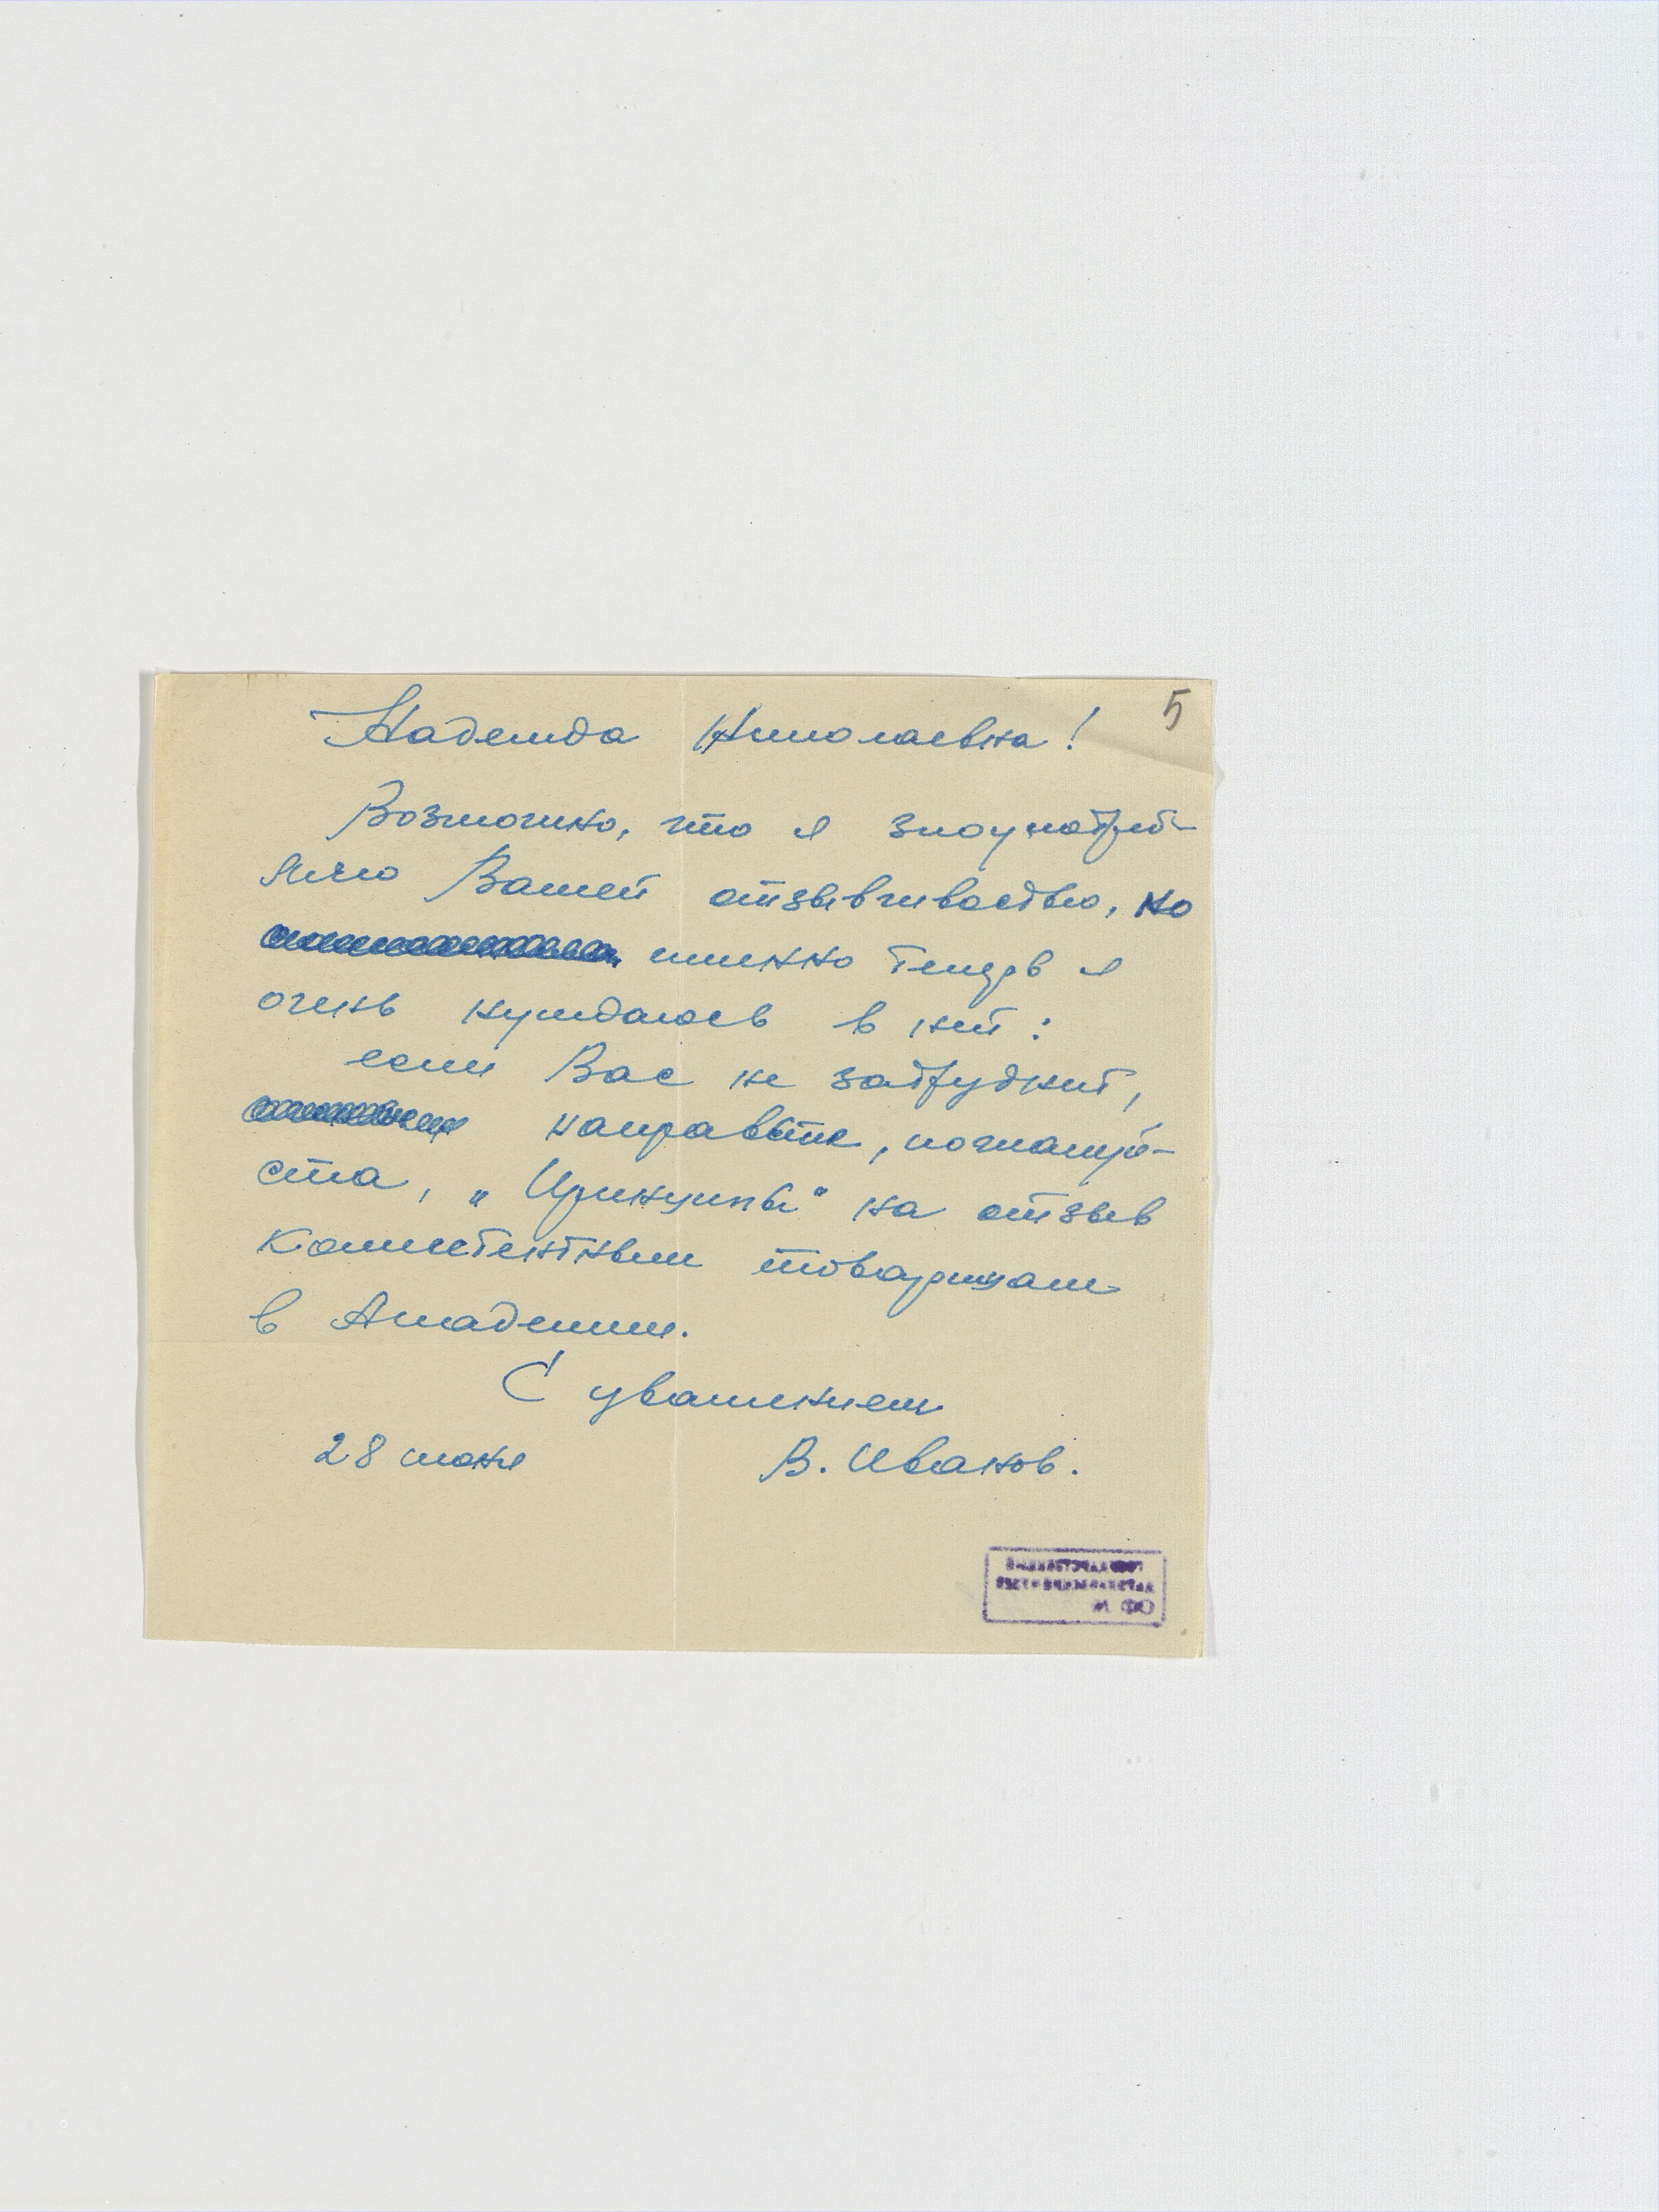 5
Надежда Николаевна!
Возможно, что я злоупотреб-
ляю Вашей отзывчивостью, но
именно теперь я
очень нуждаюсь в ней:
если Вас не затруднит,
направьте, пожалуй-
ста, „Принципы" на отзыв
компетентным товарищам
в Академии.
С уважением
28 июня В. Иванов.